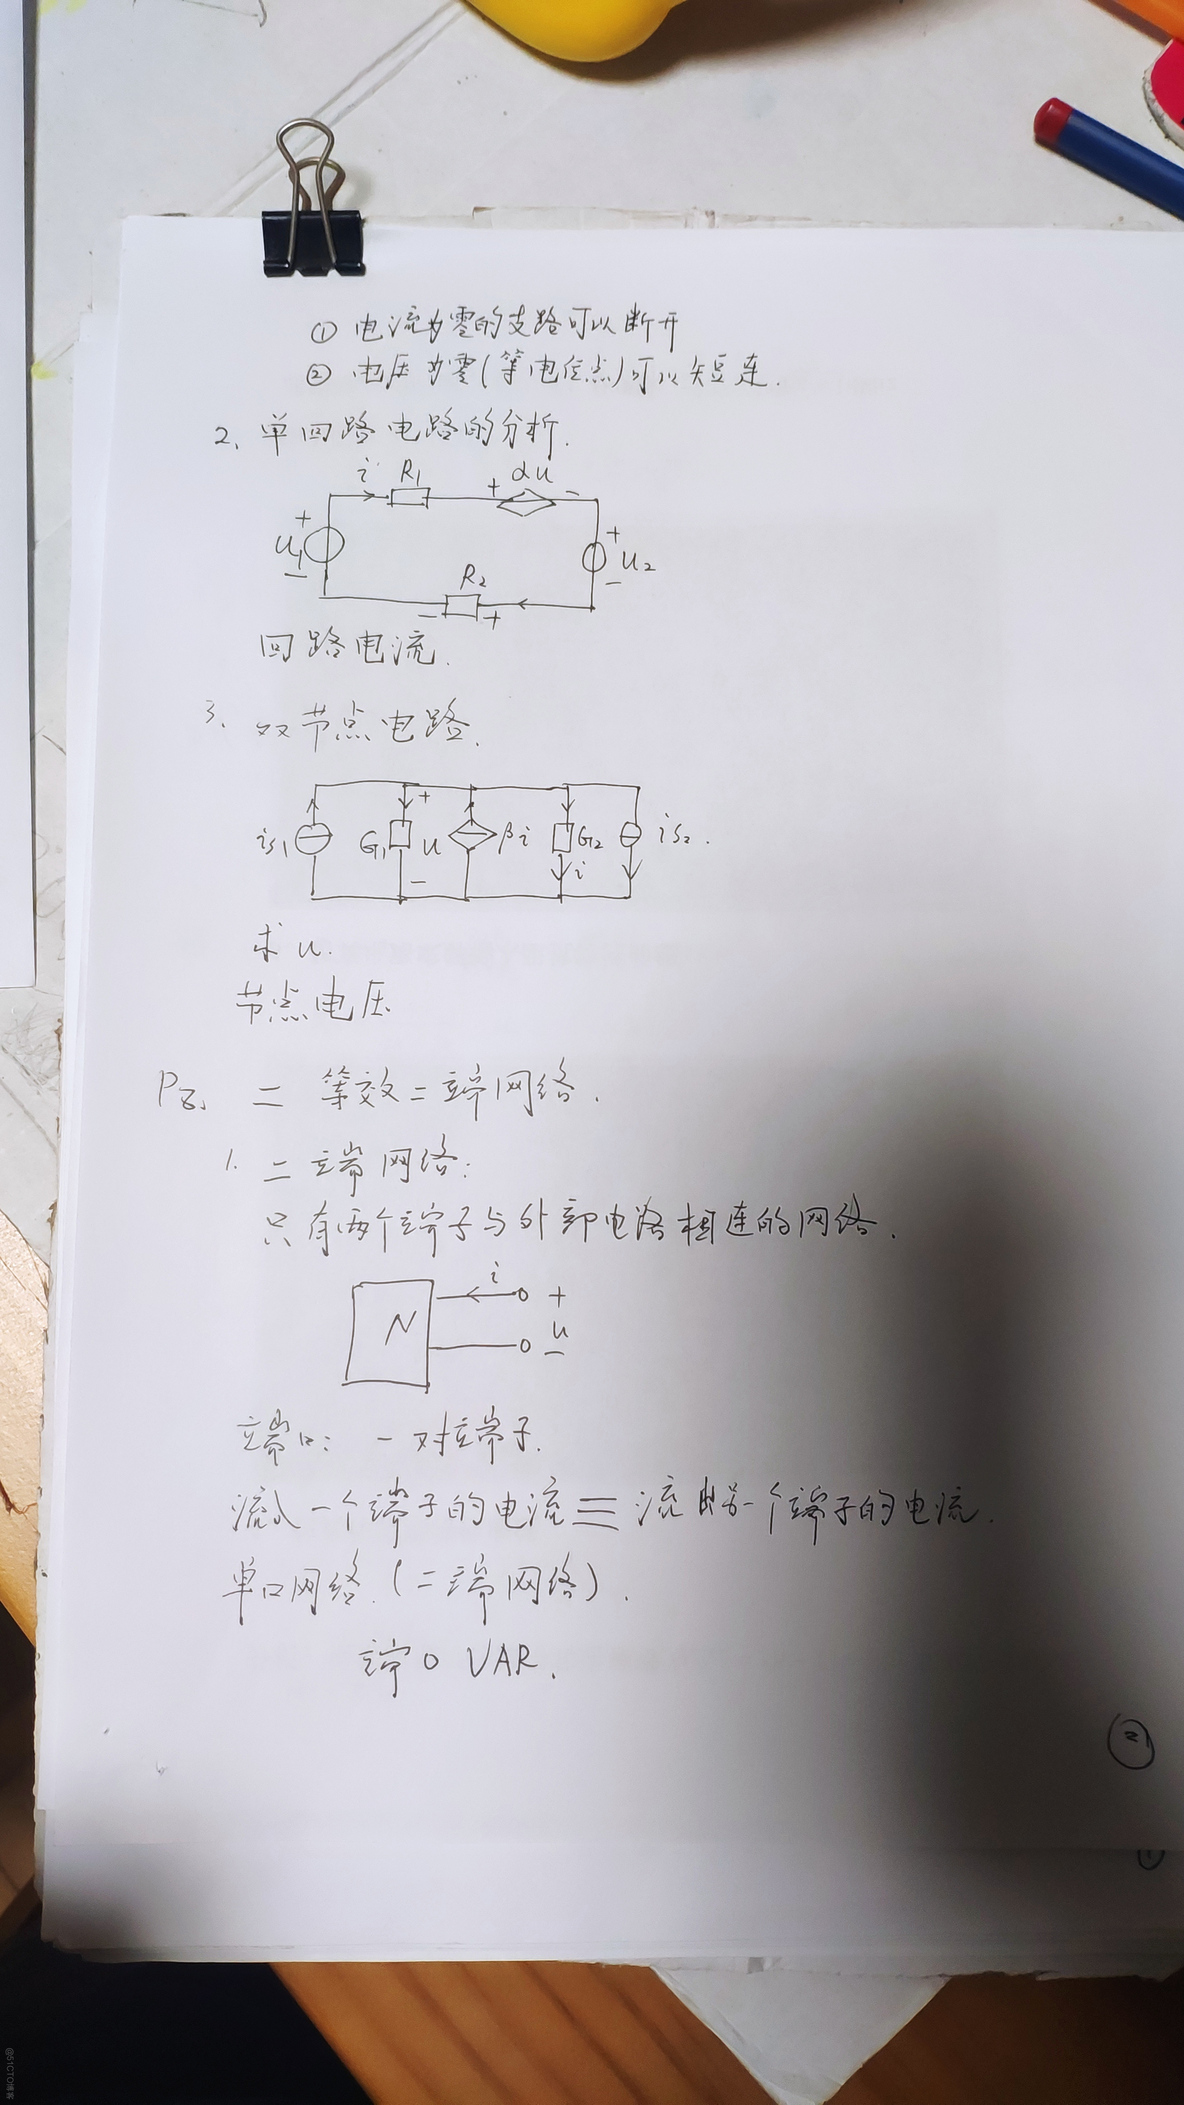 ① 电流为零的支路可以断开
② 电压为零(等电位点)可以短连.
2、单回路电路的分析.
i R₁ + αu −
+ u₁ −
+ u₂ −
R₂
− +
回路电流.
3、双节点电路.
is₁ G₁ + u − βi G₂ i is₂.
求 u.
节点电压
P8、 二 等效二端网络.
1. 二端网络:
只有两个端子与外部电路相连的网络.
i +
N u
−
端口: 一对端子.
流入一个端子的电流≡流出另一个端子的电流.
单口网络.(二端网络).
端口 VAR.
21
@51CTO博客